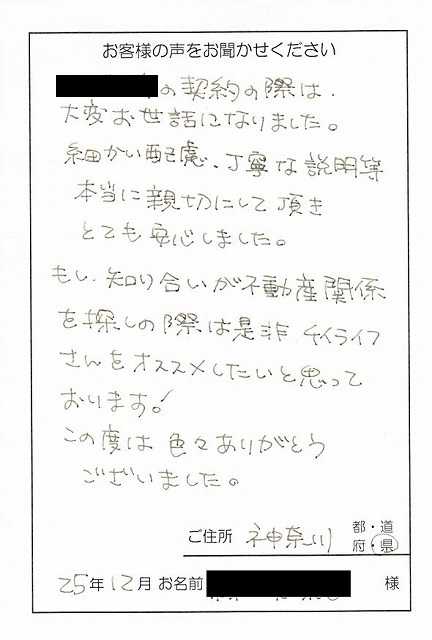 お客様の声をお聞かせください
の契約の際は、
大変お世話になりました。
細かい配慮、丁寧な説明等
本当に親切にして頂き
とても安心しました。
もし、知り合いが不動産関係
を探しの際は是非 チイライフ
さんをオススメしたいと思って
おります!
この度は色々ありがとう
ございました。
ご住所 神奈川 都・道
府・県
25年12月 お名前 様